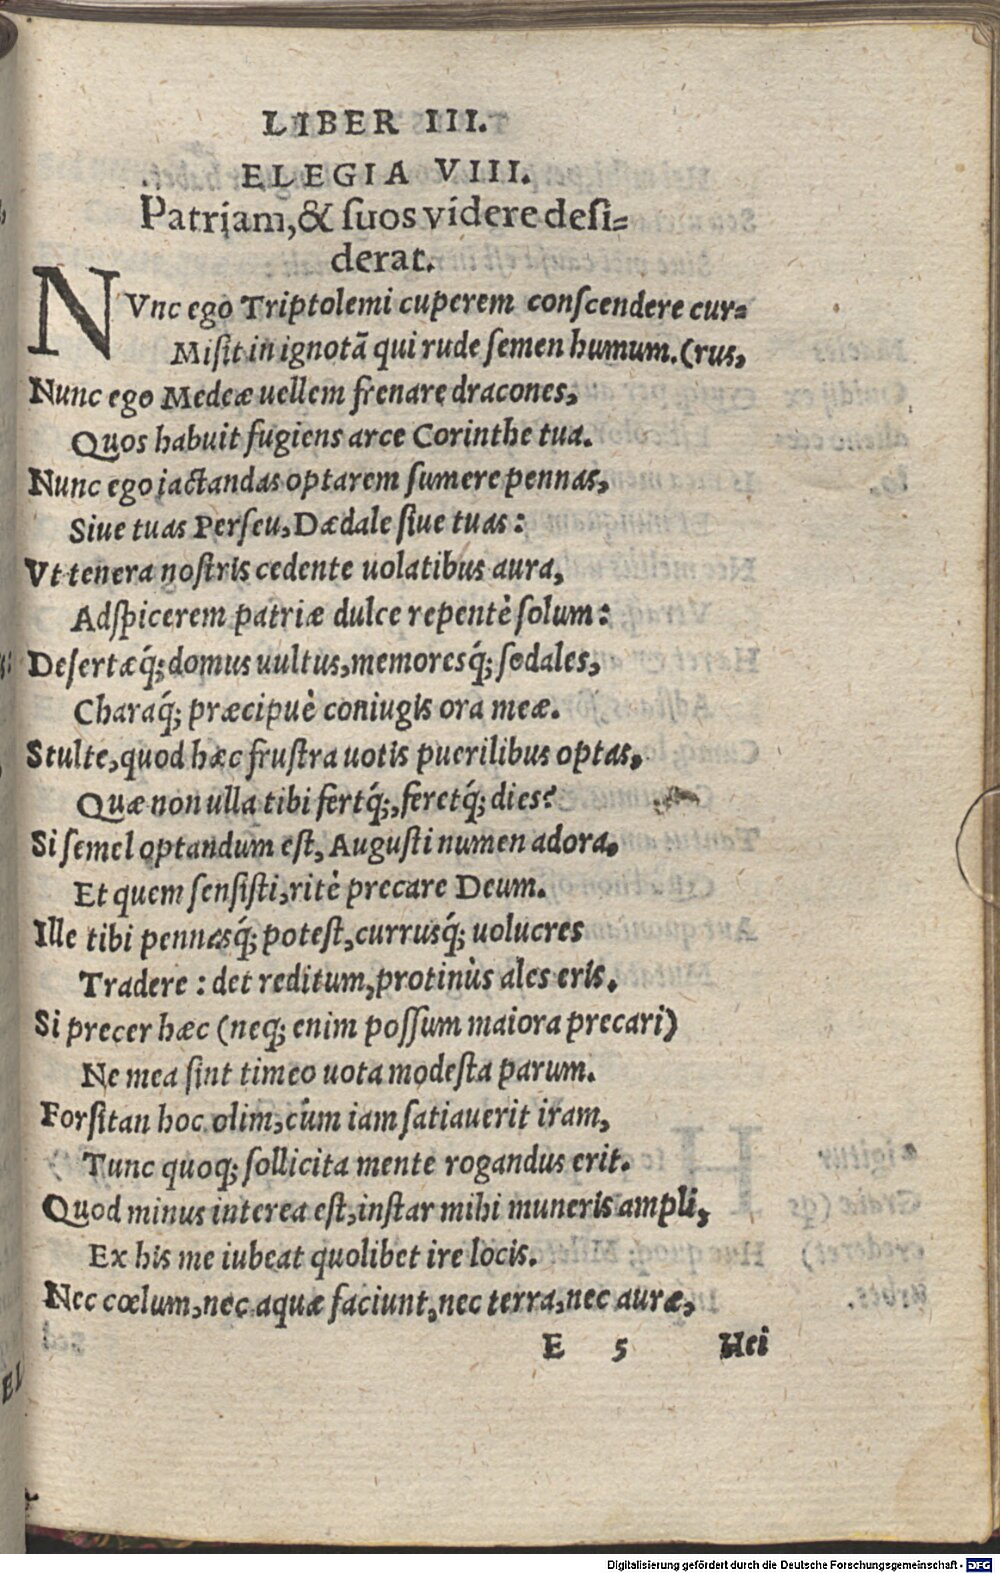 LIBER III.
ELEGIA VIII.
Patriam, & suos videre desi=
derat.
NVnc ego Triptolemi cuperem conscendere cur=
Misit in ignotã qui rude semen humum. (rus,
Nunc ego Medeæ uellem frenare dracones,
Quos habuit fugiens arce Corinthe tua.
Nunc ego iactandas optarem sumere pennas,
Siue tuas Perseu, Dædale siue tuas:
Vt tenera nostris cedente uolatibus aura,
Adspicerem patriæ dulce repentè solum:
Desertæq́; domus uultus, memoresq́; sodales,
Charaq́; præcipuè coniugis ora meæ.
Stulte, quod hæc frustra uotis puerilibus optas,
Quæ non ulla tibi fertq́;, feretq́; dies?
Si semel optandum est, Augusti numen adora,
Et quem sensisti, ritè precare Deum.
Ille tibi pennasq́; potest, currusq́; uolucres
Tradere: det reditum, protinùs ales eris.
Si precer hæc (neq; enim possum maiora precari)
Ne mea sint timeo uota modesta parum.
Forsitan hoc olim, cùm iam satiauerit iram,
Tunc quoq; sollicita mente rogandus erit.
Quod minus interea est, instar mihi muneris ampli,
Ex his me iubeat quolibet ire locis.
Nec cœlum, nec aquæ faciunt, nec terra, nec auræ,
E 5 Hei
Digitalisierung gefördert durch die Deutsche Forschungsgemeinschaft - DFG